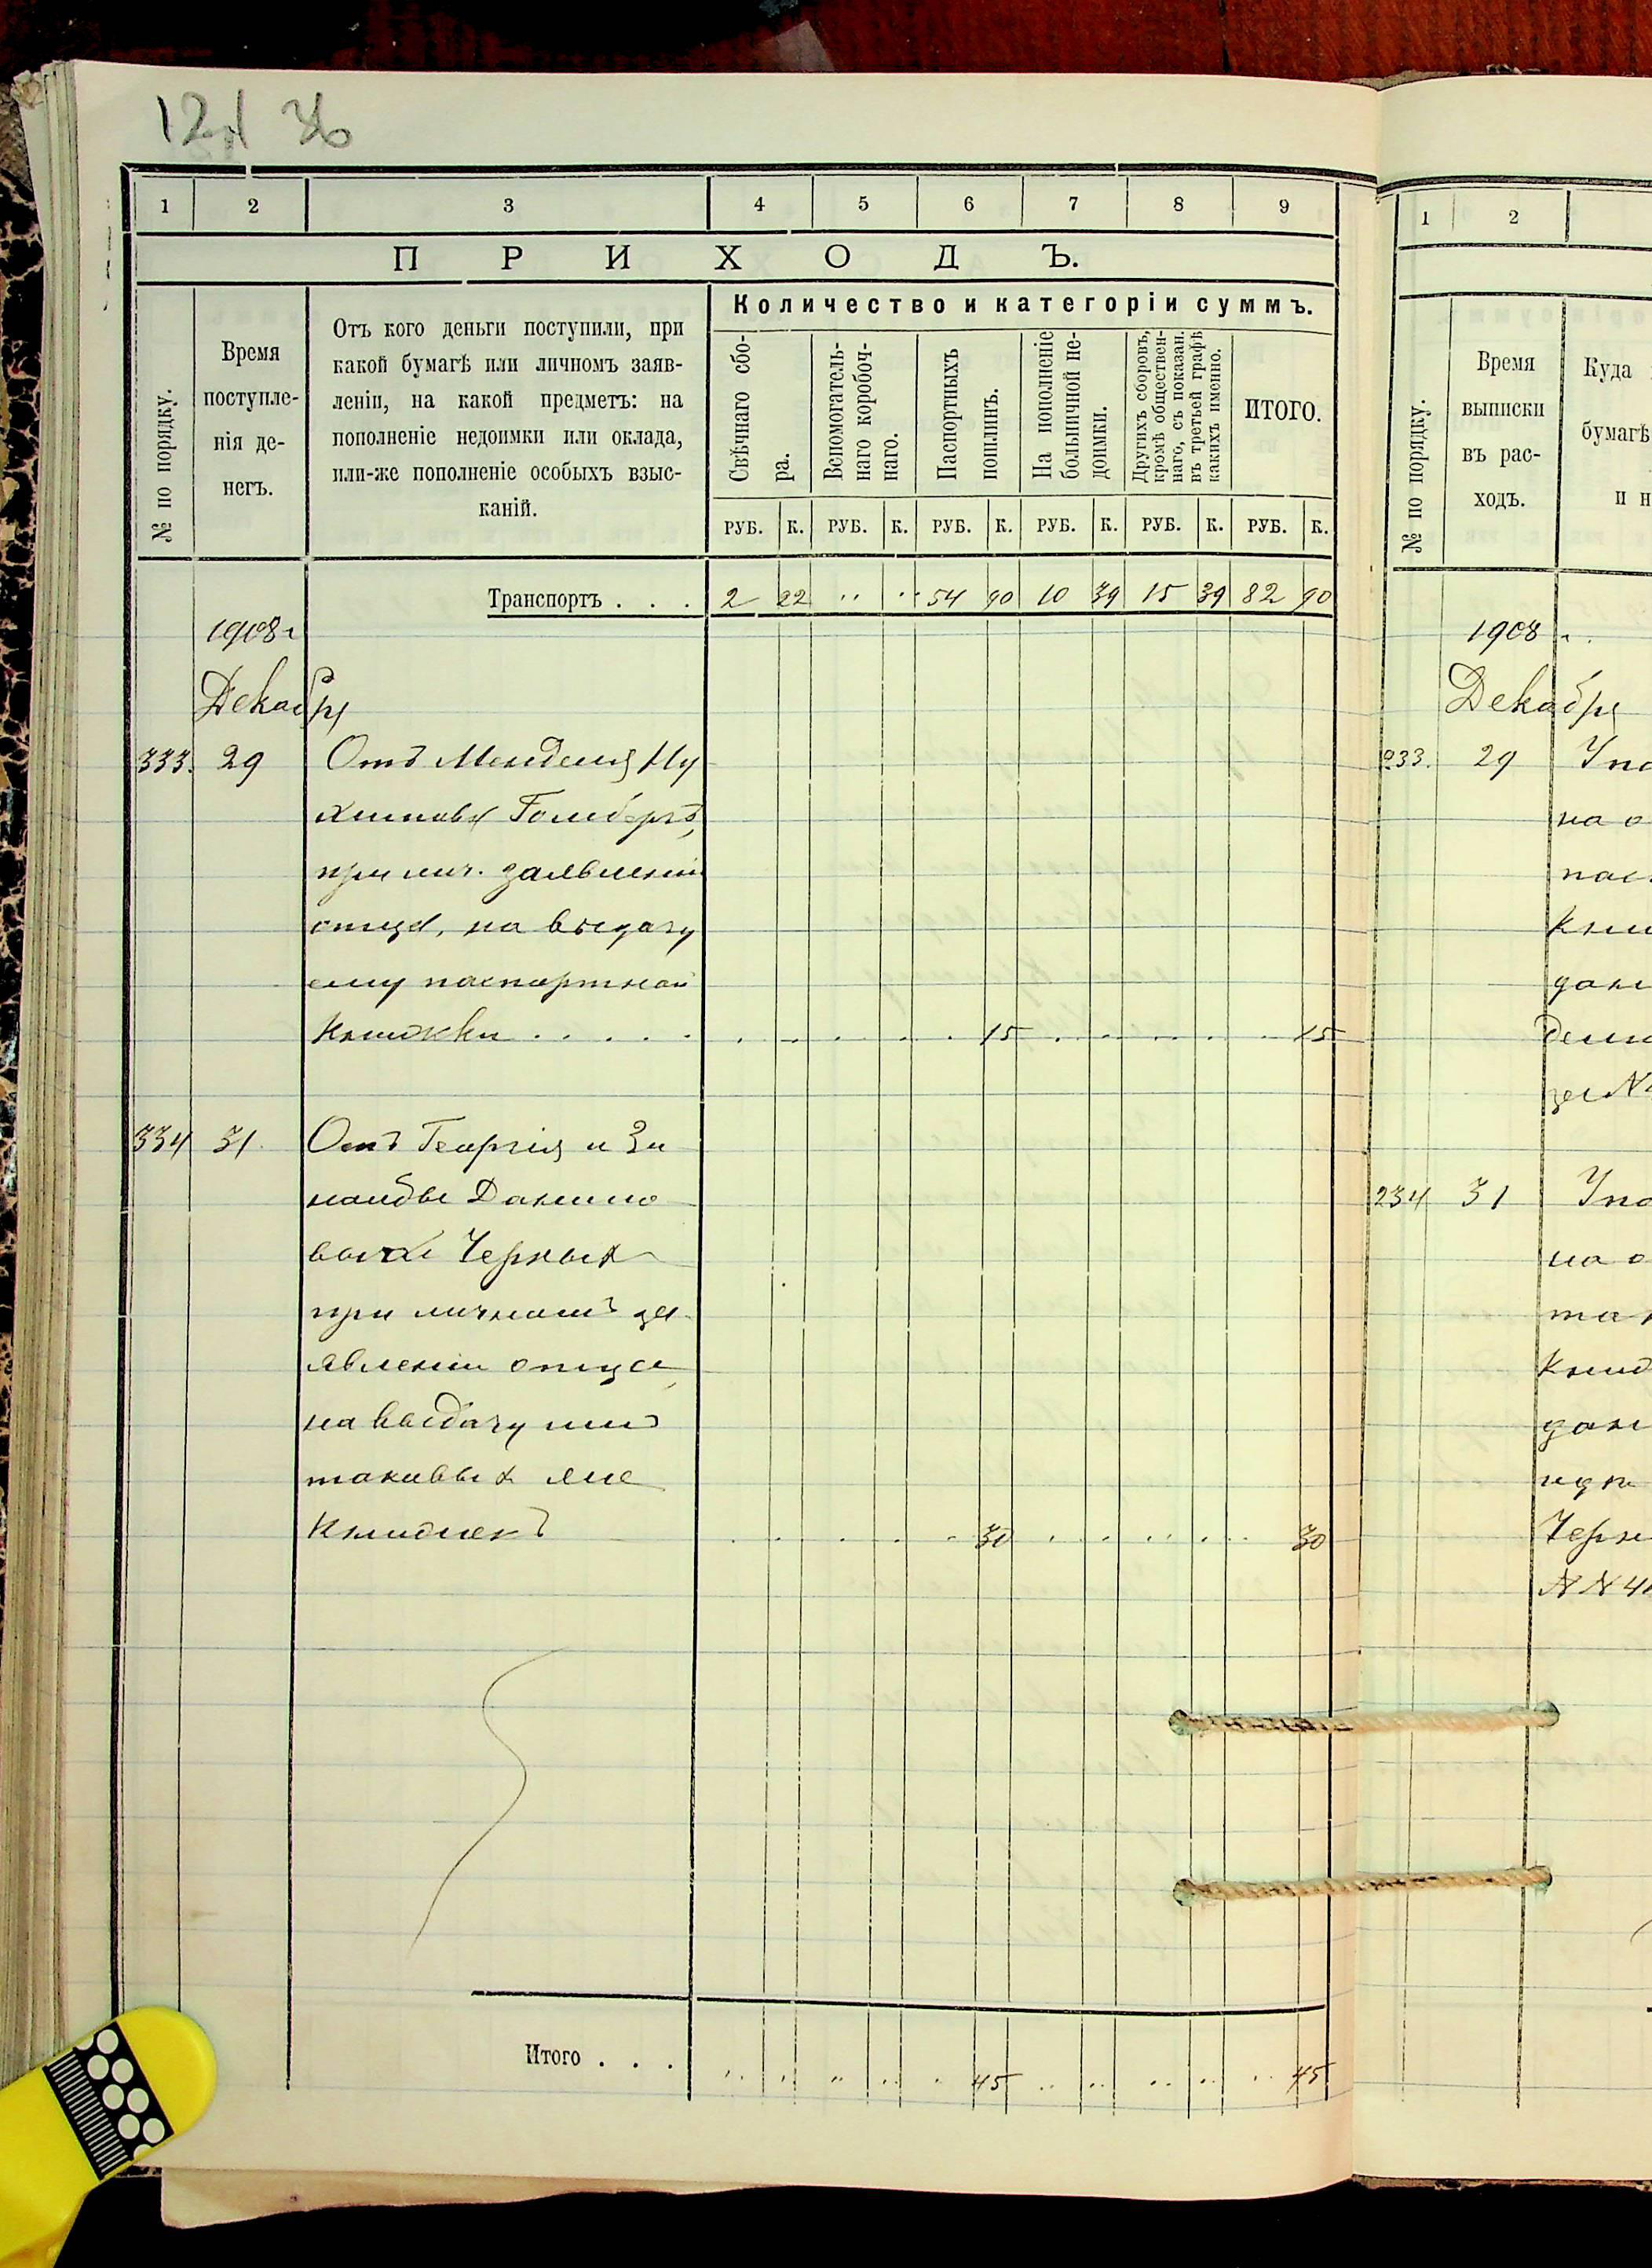 1 2 3 4 5 6 7 8 9
ПРИХОДЪ.
№ по порядку.
Время
поступле-
нія де-
негъ.
Отъ кого деньги поступили, при
какой бумагѣ или личномъ заяв-
леніи, на какой предметъ: на
пополненіе недоимки или оклада,
или-же пополненіе особыхъ взыс-
каній.
Количество и категоріи суммъ.
Свѣчнаго сбо-
ра.
Вспомогатель-
наго коробоч-
наго.
Паспортныхъ
пошлинъ.
На пополненіе
больничной не-
доимки.
Другихъ сборовъ,
кромѣ обществен-
наго, съ показан.
въ третьей графѣ
какихъ именно.
ИТОГО.
РУБ. К. РУБ. К. РУБ. К. РУБ. К. РУБ. К. РУБ. К.
Транспортъ . . . 2 22 54 90 10 39 15 39 82 90
1908 г
Декабря
333. 29 Отъ Менделя Ну
химова Гольдбергъ,
при лич. заявленіи
отца, на выдачу
ему паспортной
книжки . . . . . 15 15
334 31 Отъ Георгія и Зи
наиды Данило
выхъ Черныхъ
при личномъ за-
явленіи отца,
на выдачу имъ
таковыхъ же
книжекъ 30 30
Итого . . . 45 45
1 2
№ по порядку.
Время
выписки
въ рас-
ходъ.
Куда
бумагѣ
и н
1908 г.
Декабря
233. 29
на о
234 31
на о